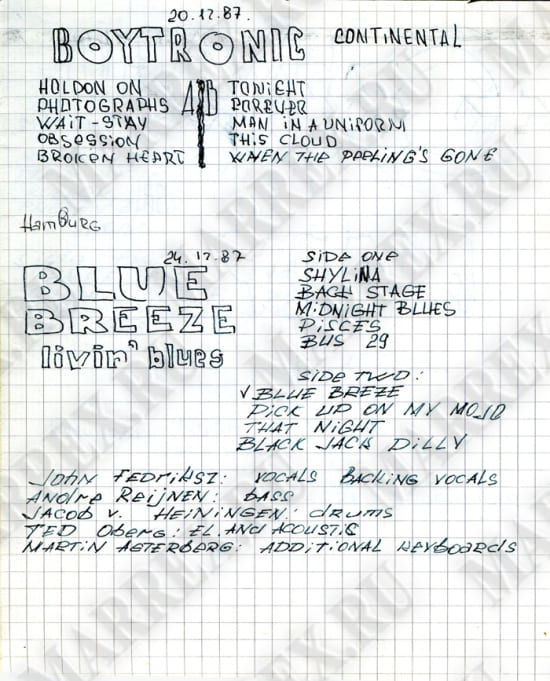 20.12.87.
BOYTRONIC CONTINENTAL
HOLDON ON TONIGHT
PHOTOGRAPHS FOREVER
WAIT-STAY MAN IN A UNIFORM
OBSESSION THIS CLOUD
BROKEN HEART WHEN THE FEELING'S GONE
HamBURG
24.12.87
BLUE
BREEZE
livin' blues
SiDE ONE
SHYLINA
BACK STAGE
MiDNiGHT BLUES
PiSCES
BUS 29
SiDE TWO:
√ BLUE BREZE
PiCK UP ON MY MOJO
THAT NiGHT
BLACK JACK DiLLY
JOHN FEDRiKSZ: VOCALS BACKiNG VOCALS
ANDRe ReiJNEN: BASS
JACOB v. HEiNiNGEN: dRUMS
TED Oberg: EL. AND ACOUSTiC
MARTiN AGTERBERG: ADDiTiONAL KEYBOARdS
MARREX.RU